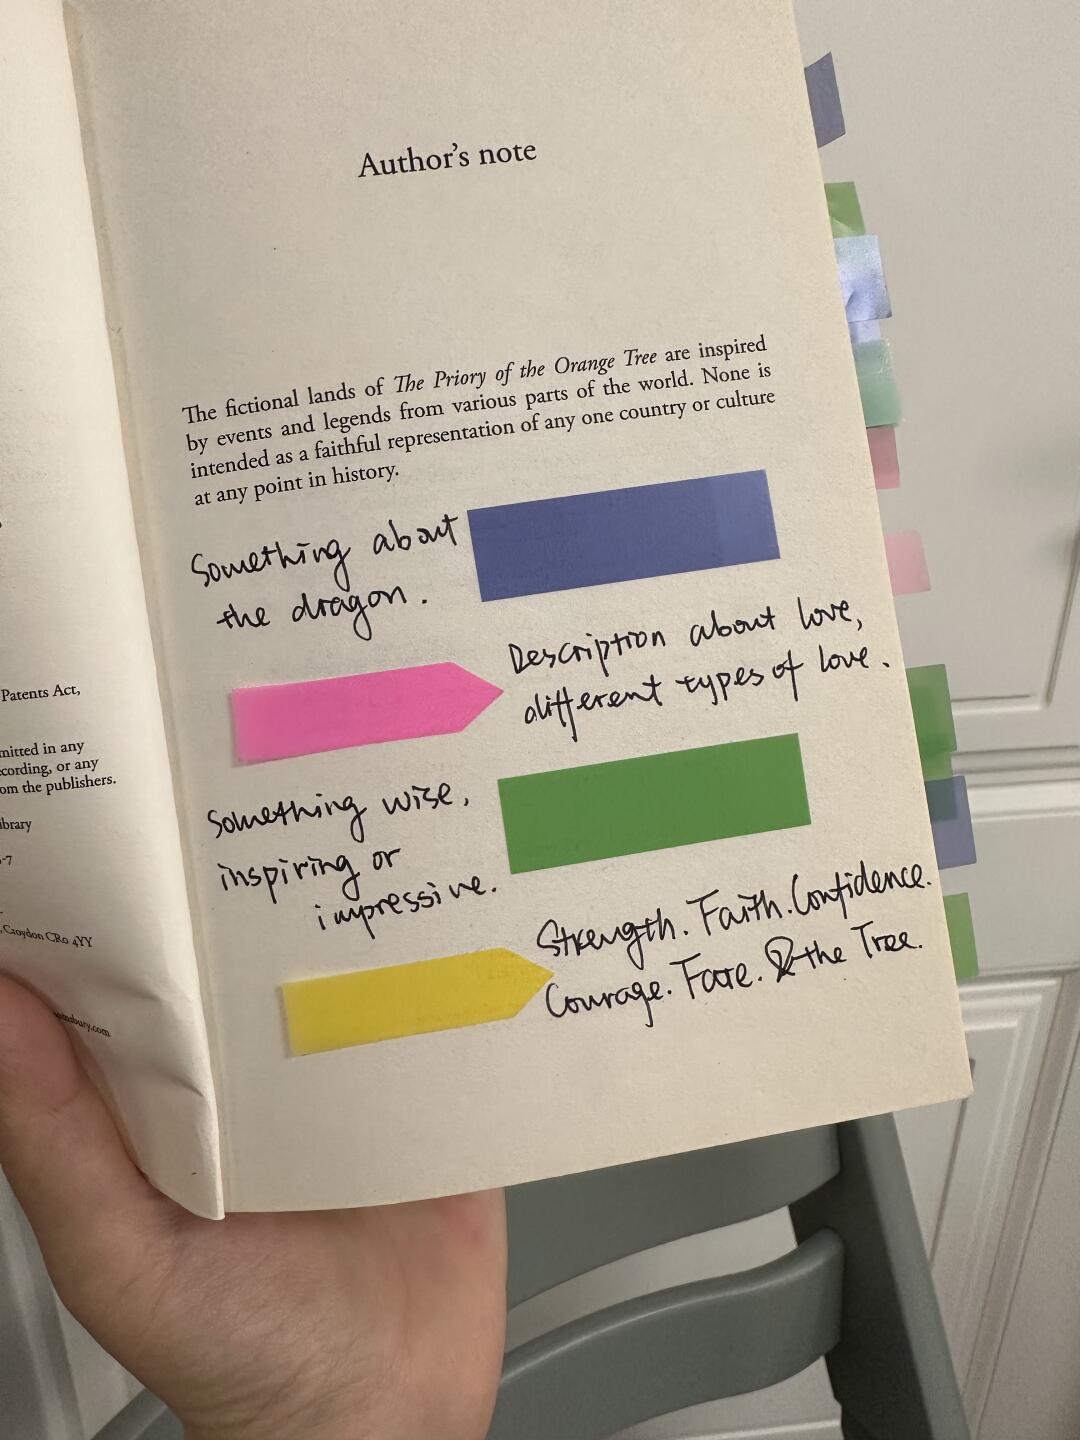 Patents Act,
mitted in any
cording, or any
om the publishers.
ibrary
-7
Croydon CR0 4YY
msbury.com
Author's note
The fictional lands of The Priory of the Orange Tree are inspired
by events and legends from various parts of the world. None is
intended as a faithful representation of any one country or culture
at any point in history.
Something about
the dragon.
Description about love,
different types of love.
Something wise,
inspiring or
impressive.
Strength. Faith. Confidence.
Courage. Fate. & the Tree.